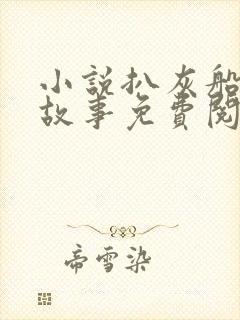 小說扒灰船
故事免費閱
帝雪染